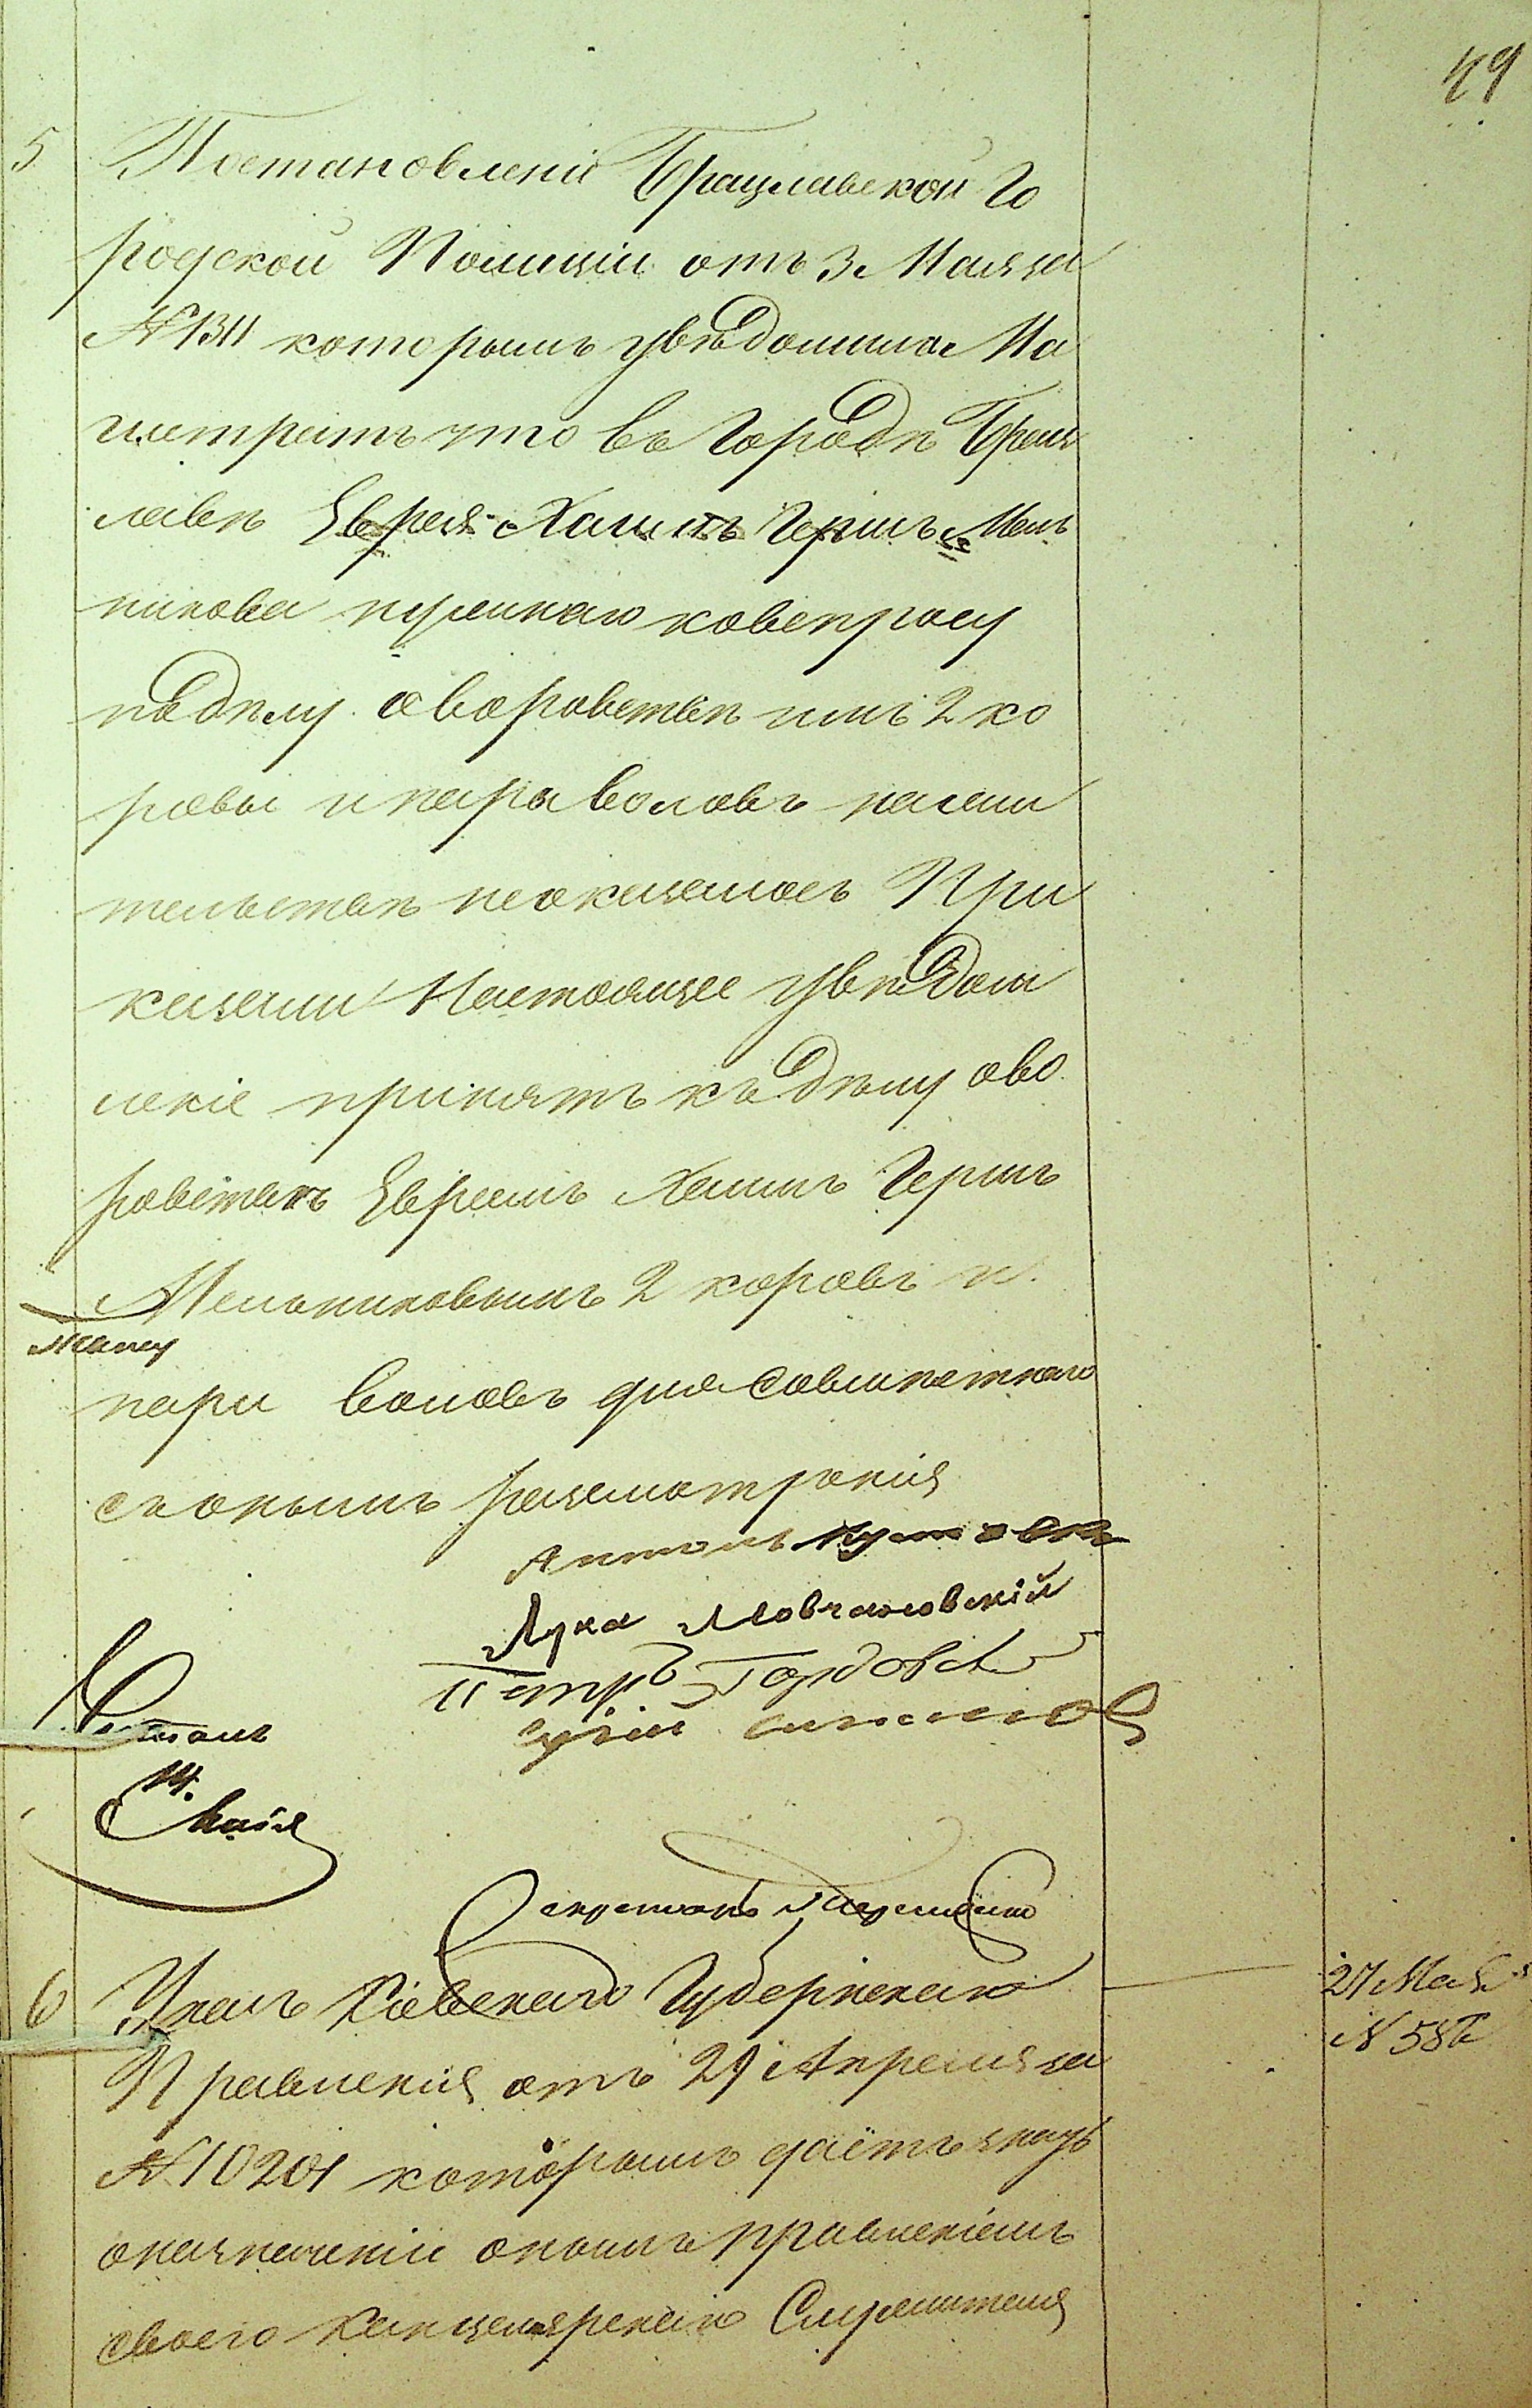 49
5 Постановленіе Брацлавской Го
родской Полиціи отъ 3 Мая за
№ 1311 которымъ увѣдомила Ма
гистратъ что въ Городѣ Брац
лавѣ Еврея Хаимъ Герш Мель
никова нужнаго ковспросу
подѣлу оворовствѣ имъ 2 ко
ровы и пары воловъ нажи
тельствѣ неоказалось При
казали Настоящее увѣдом
леніе принять къ дѣлу ово
ровствѣ Евреемъ Хаимъ Гершъ
Мельниковымъ 2 коровъ и
пары воловъ для совмѣстнаго
съ онымъ разсмотренія
Антонъ
Лука Мовчановскій
Петръ
14.
Мая
Секретарь
6 Указъ Кіевскаго Губернскаго
Правленія отъ 29 Апреля за
№ 10201 которымъ даётъ знать
оназначеніи онымъ правленіемъ
своего Канцелярскаго Служителя
27 Мая
№ 586